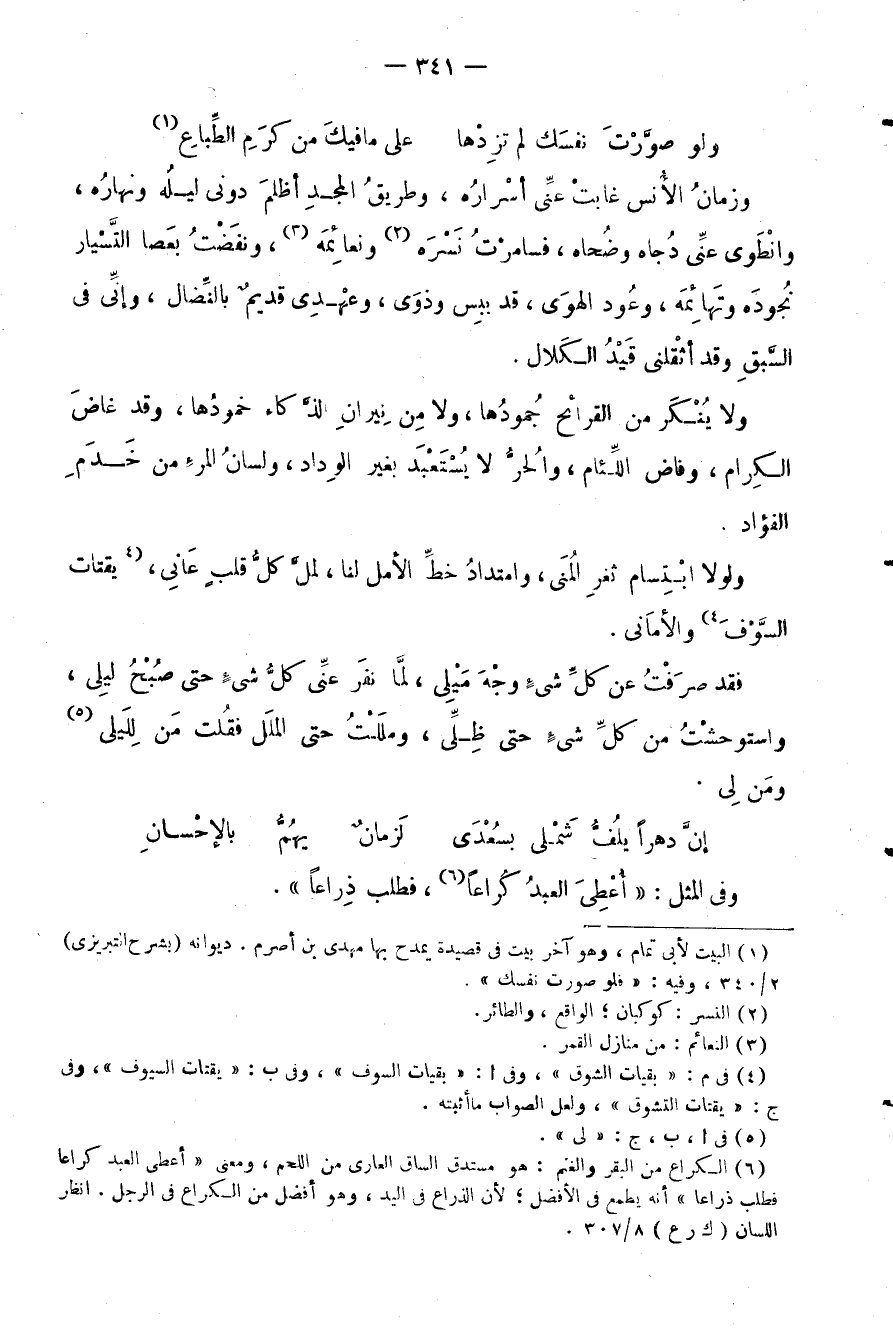 — ٣٤١ —
ولو صوَّرْتَ نفسَك لم تزِدْها على مافيكَ من كرَمِ الطِّباعِ(١)
وزمانُ الأُنس غابتْ عنِّى أسْرارُه ، وطريقُ المجـدِ أظلمَ دونى ليـلُه ونهارُه ،
وانْطَوى عنِّى دُجاه وضُحاه ، فسامرْتُ نَسْرَه (٢) ونعائمَه (٣) ، ونفَضْتُ بعَصا التَّسْيار
نُجُودَه وتَهائمَه ، وعُود الهوَى ، قد يبِس وذوَى ، وعهْـدِى قديمٌ بالنِّضال ، وإنِّى فى
السَّبقِ وقد أثقلنى قَيْدُ الـكَلال .
ولا يُنْـكَر من القرائحِ جُمودُها ، ولا مِن نِيرانِ الذَّكاء خمودُها ، وقد غاضَ
الـكِرام ، وفاض اللِّـئام ، والحرُّ لا يُسْتَعْبَد بغير الوِداد ، ولسانُ المرءِ من خَـدَمِ
الفؤاد .
ولولا ابْـتِسام ثغرِ المُنَى ، وامتدادُ خطِّ الأمل لنا ، لملَّ كلُّ قلبٍ عَانِى ، (٤ يقتات
السوْفَ ٤) والأمانى .
فقد صرَفْتُ عن كلِّ شىءٍ وجْهَ مَيْلِى ، لمَّا نفَر عنِّى كلُّ شىءٍ حتى صُبْحُ ليلِى ،
واستوحشْتُ من كلِّ شىءٍ حتى ظِـلِّى ، وملَلْتُ حتى الملَل فقُلت مَن لِلَيلى (٥)
ومَن لِى .
إنَّ دهراً يلُفُّ شَمْـلِى بسُعْدَى لَزمانٌ يهُمُّ بالإحْسـانِ
وفى المثل : « أُعْطِىَ العبدُ كُراعاً(٦) ، فطلب ذِراعاً » .
(١) البيت لأبى تمام ، وهو آخر بيت فى قصيدة يمدح بها مهدى بن أصرم . ديوانه (بشرح التبريزى)
٣٤٠/٢ ، وفيه : « فلو صورت نفسك » .
(٢) النسر : كوكبان ؛ الواقع ، والطائر.
(٣) النعائم : من منازل القمر .
(٤) فى م : « بقيات الشوق » ، وفى ا : « بقيات السوف » ، وفى ب : « يقتات السيوف »، وفى
ج : « يقتات التشوق » ، ولعل الصواب ماأثبته .
(٥) فى ا ، ب ، ج : « لى » .
(٦) الـكراع من البقر والغنم : هو مستدق الساق العارى من اللحم ، ومعنى « أعطى العبد كراعا
فطلب ذراعا » أنه يطمع فى الأفضل ؛ لأن الذراع فى اليد ، وهو أفضل من الـكراع فى الرجل . انظر
اللسان ( ك ر ع ) ٣٠٧/٨ .